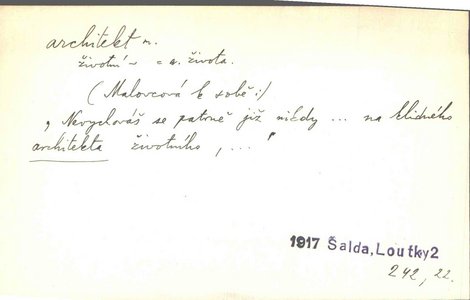 architekt m.
životní – = a. života.
(Malovcová k sobě:)
„Nevyclováš se patrně již nikdy ... na klidného
architekta životního, ..."
1917 Šalda, Loutky2
242, 22.